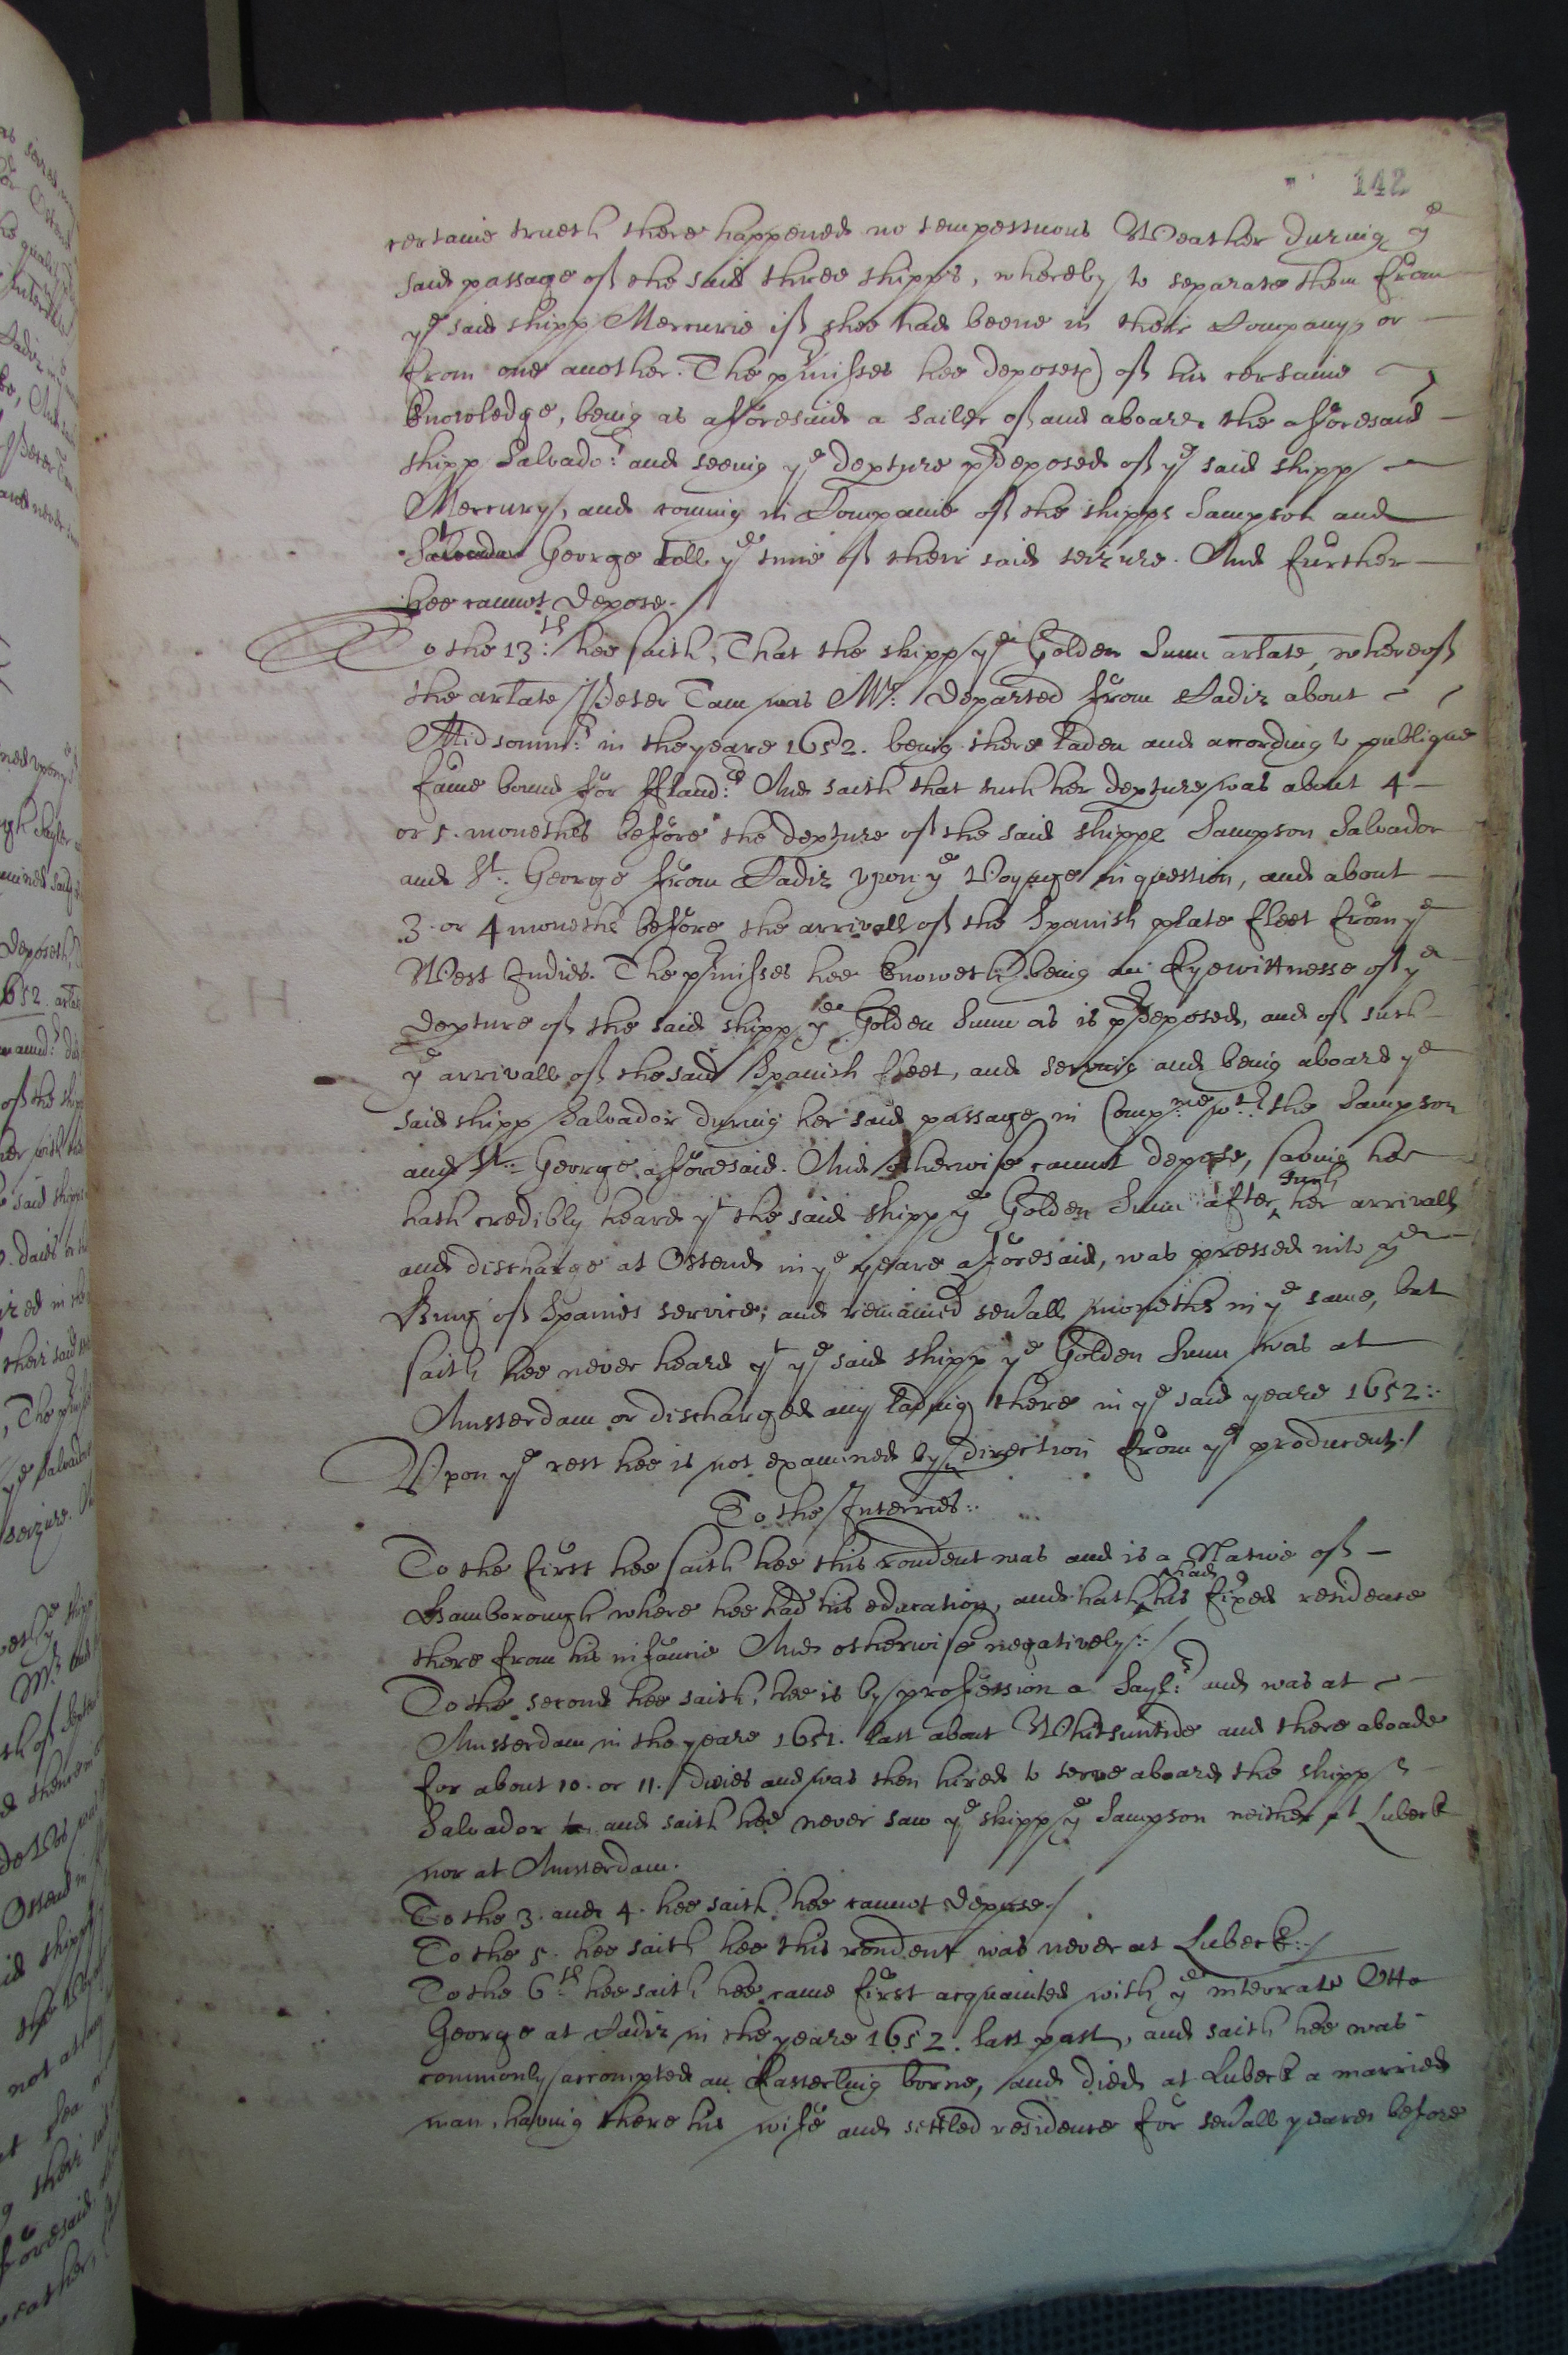 142
certaine trueth there happened no tempestuous Weather during ye
said passage of the said three shipps, whereby to separate them from
ye said shipp Mercurie if shee had beene in their Company or
from one another. The pr̃misses hee deposeth of his certaine
knowledge, being as afforesaid a sailer of and aboard the afforesaid
shipp Salvador: and seeing ye depture p̃deposed of ye said shipp
Mercury, and coming in Companie of the shipps Sampson and
Salvador George till ye time of their said seizure. And further
hee cannot depose./
To the 13:th hee saith, That the shipp ye Golden Sunn arlate, whereof
the arlate Peter Tam was Mr: departed from Cadiz about
Midsomm:r in the yeare 1652. being there laden and according to publique
fame bound for ffland:rs And saith that such her depture was about 4
or 5. moneths before the depture of the said shipps Sampson Salvador
and St: George from Cadiz upon ye Voyage in question, and about
3. or 4 moneths before the arrivall of the Spanish plate fleet from ye
West Indies. The pr̃misses hee knoweth being an Eyewittnesse of ye
depture of the said shipp ye Golden Sunn as is p̃deposed, and of such
ye arrivall of the said Spanish fleet, and serving and being aboard ye
said shipp Salvador during her said passage in Comp:nie wth: the Sampson
and St: George afforesaid. And otherwise cannot depose, saving hee
hath credibly heard yt the said shipp ye Golden Sunn after such her arrivall
and discharge at Ostend in ye yeare afforesaid, was pressed into ye
King of Spaines service; and remained sevall moneths in ye same, but
saith hee never heard yt ye said shipp ye Golden Sunn was at
Amsterdam or discharged any lading there in ye said yeare 1652:
Vpon ye rest hee is not examined by direction from ye producent./
To the Interries:
To the first hee saith hee this rondent was and is a Native of
Hamborough where hee had his education, and hath had his fixed residence
there from his infancie And otherwise negatively:/
To the second hee saith, hee is by profession a Sayl:r and was at
Amsterdam in the yeare 1651. last about Whitsuntide and there aboade
for about 10. or 11. daies and was then hired to serve aboard the shipp
Salvador and saith hee never saw ye shipp ye Sampson neither at Lubeck
nor at Amsterdam.
To the 3. and 4. hee saith hee cannot depose./
To the 5. hee saith hee this rondent was never at Lubeck:/
To the 6:th hee saith hee came first acquainted with ye interrate Otto
George at Cadiz in the yeare 1652. last past, and saith hee was
commonly accompted an Easterling borne, and died at Lubeck a married
man, having there his wife and settled residence for sevall yeares before